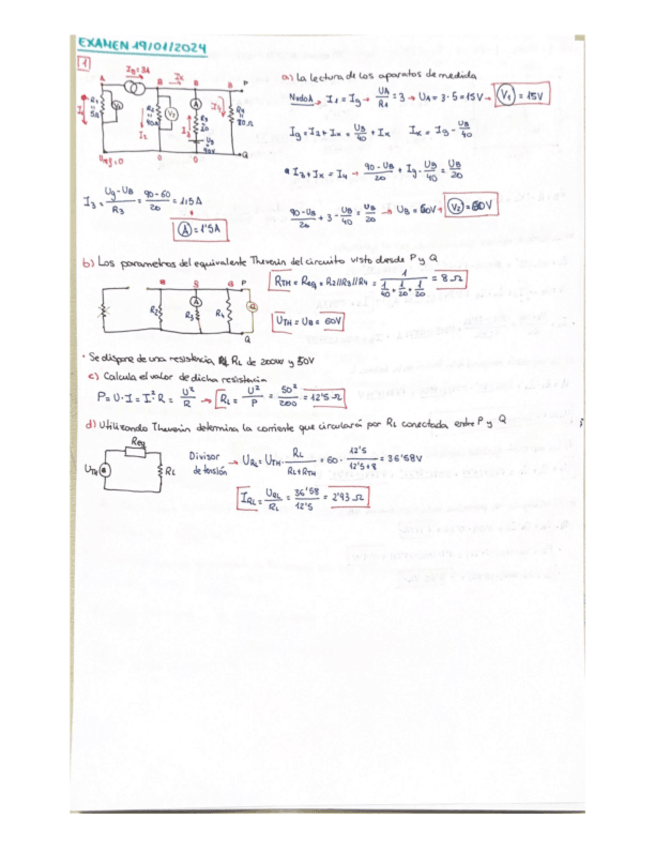 EXAMEN 19/01/2024
1
Ig=3A
Ix
A B B B P
R1 = 5Ω
V1
R2 = 40Ω
V2
I2
A
R3 = 20
I3
I4
Ug 90V
R4 = 20Ω
Uref=0 0 0 Q
a) La lectura de los aparatos de medida
Nudo A → I1 = Ig → UA/R1 = 3 → UA = 3·5 = 15V → V1 = 15V
Ig = I2 + Ix = UB/40 + Ix   Ix = Ig - UB/40
• I3 + Ix = I4 → (90-UB)/20 + Ig - UB/40 = UB/20
(90-UB)/20 + 3 - UB/40 = UB/20 → UB = 60V → V2 = 60V
I3 = (Ug-UB)/R3 = (90-60)/20 = 1,5A
A = 1'5A
b) Los parametros del equivalente Thevenin del circuito visto desde P y Q
B B B P
R2
A
R3
R4
Q
RTH = Req = R2//R3//R4 = 1/(1/40 + 1/20 + 1/20) = 8Ω
UTH = UB = 60V
• Se dispone de una resistencia RL de 200W y 50V
c) Calcula el valor de dicha resistencia
P = U·I = I²·R = U²/R → RL = U²/P = 50²/200 = 12'5Ω
d) Utilizando Thevenin determina la corriente que circulará por RL conectada entre P y Q
Req
UTH
RL
Divisor de tensión → URL = UTH · RL/(RL+RTH) = 60 · 12'5/(12'5+8) = 36'58V
IRL = URL/RL = 36'58/12'5 = 2'93 Ω